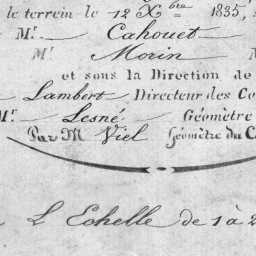 le terrein le 12 Xbre 1835,
Mr. Cahouet
Mr. Morin
et sous la Direction de
Lambert Directeur des Co
Mr. Lesné Géomètre
Par M Viel Géomètre du C
L'Echelle de 1 à 2